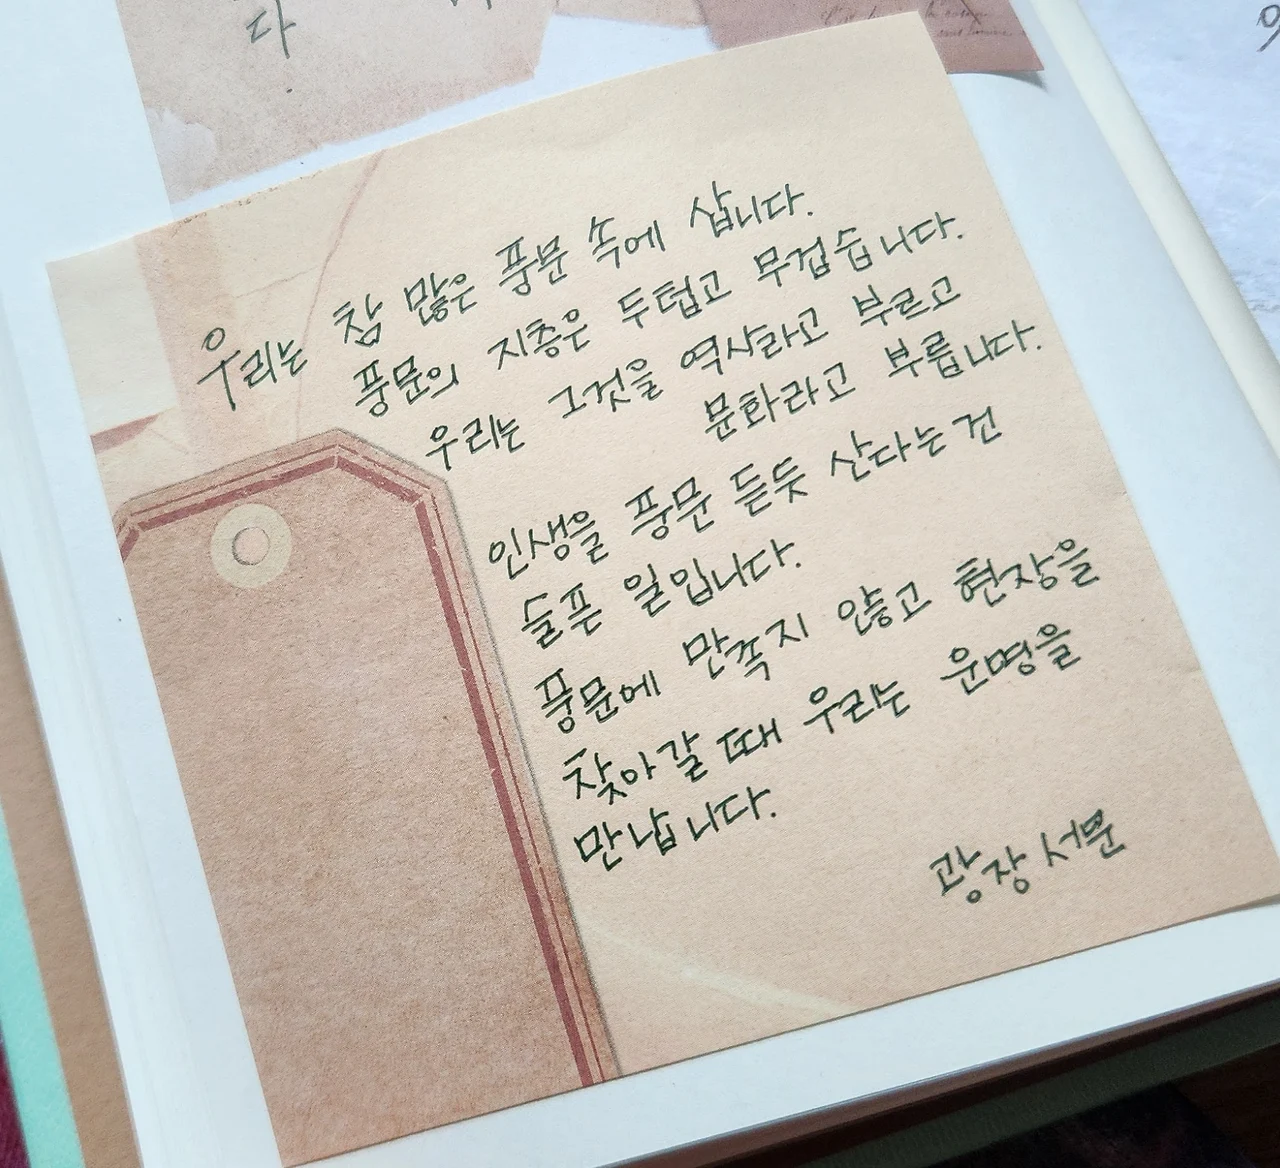 다
우리는 참 많은 풍문 속에 삽니다.
풍문의 지층은 두텁고 무겁습니다.
우리는 그것을 역사라고 부르고
문화라고 부릅니다.
인생을 풍문 듣듯 산다는 건
슬픈 일입니다.
풍문에 만족지 않고 현장을
찾아갈 때 우리는 운명을
만납니다.
광장 서문